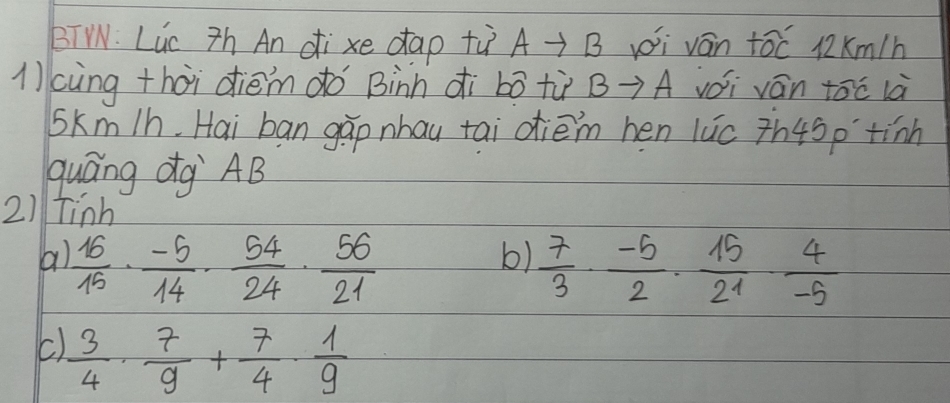 BTVN: Lúc 7h An đi xe đạp từ A → B với vân tốc 12Km/h
1) cùng thời điểm đó Bình đi bộ từ B → A với vân tốc là
5Km/h. Hai bạn gặp nhau tại điểm hẹn lúc 7h45p' tính
quãng đg` AB
2) Tính
a) 16/15 · -5/14 · 54/24 · 56/21 b) 7/3 · -5/2 · 15/21 · 4/-5
c) 3/4 · 7/9 + 7/4 · 1/9